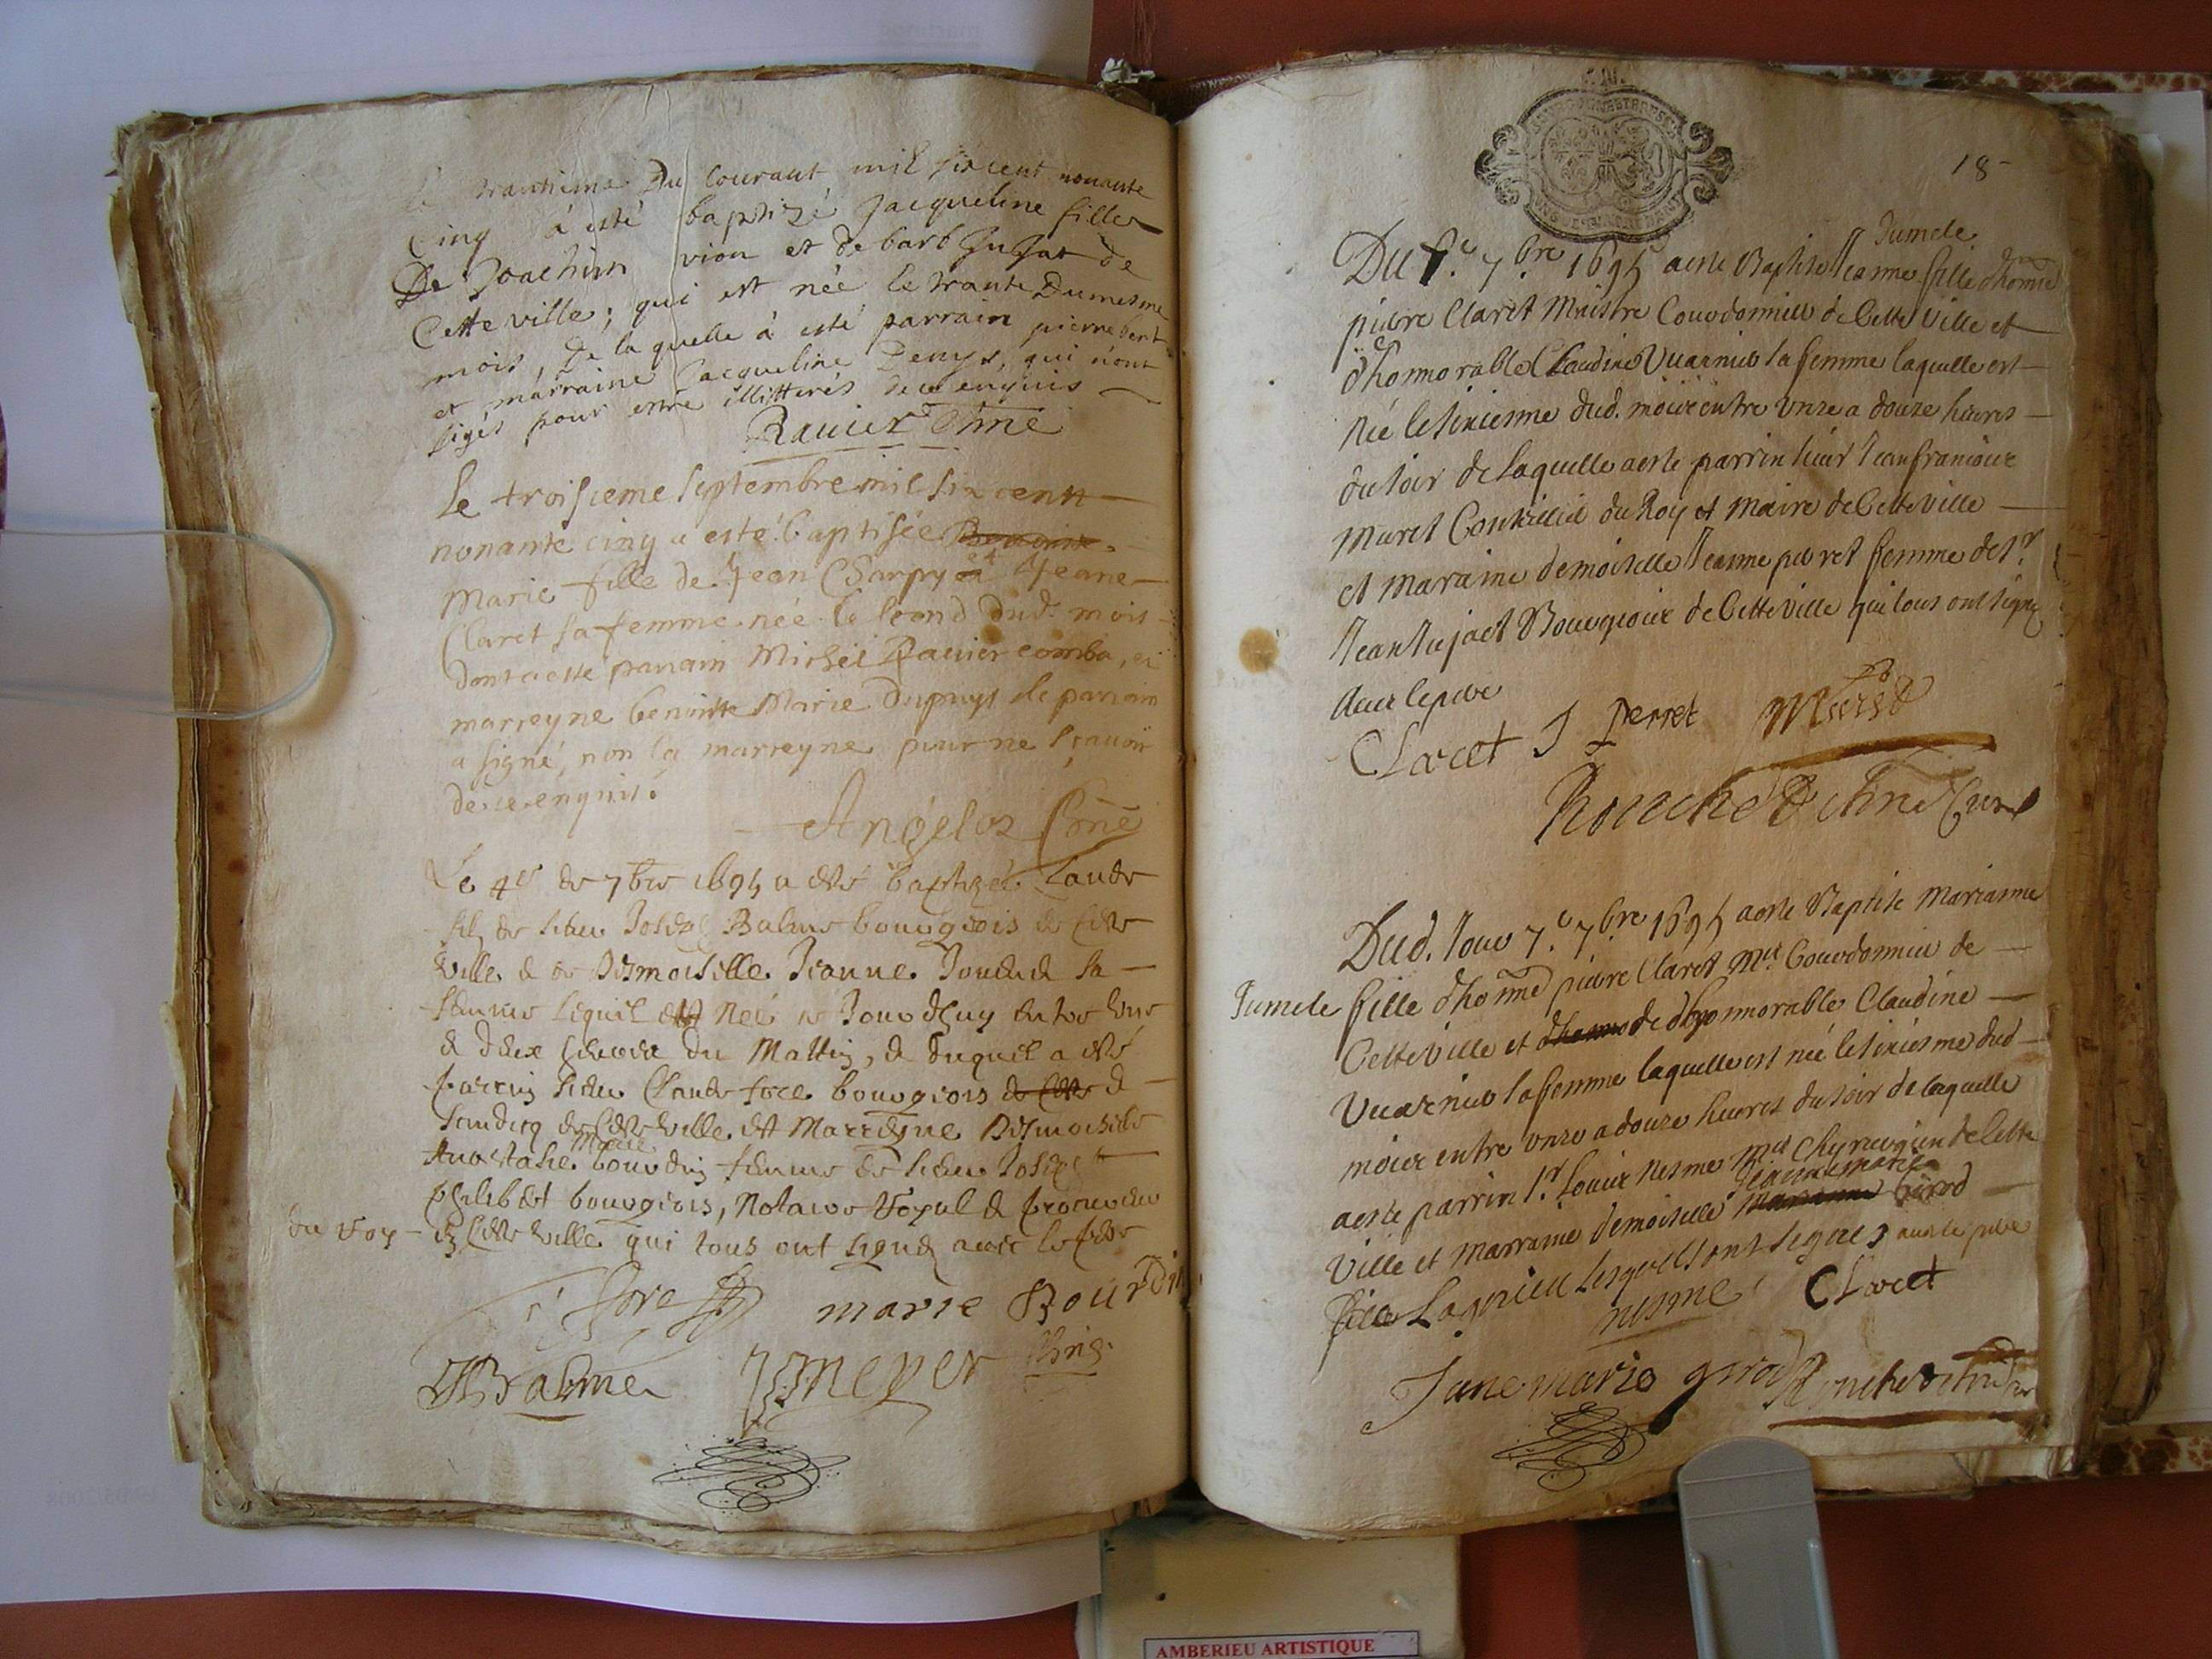 Le trantieme Du Courant mil six cent nonante
Cinq à esté baptizé Jacqueline fille
De Joachim vion et de barb de
Cette ville; qui est née le trante Dumesme
mois, De la quelle à esté parrain pierre
et marraine Jacqueline Denys, qui n'ont
signés pour estre illitterés de ce enquis
Rauier
Le troisieme septembre mil six cent
nonante cinq a esté baptisée
Marie fille de Jean Charpy et Jeane
Claret sa femme née le second dud. mois
dont a esté parrain Michel Rauier comba, et
marreyne benoiste Marie Dupuys le parrain
a signé, non la marreyne pour ne sçauoir
de ce enquis.
Angelot
Le 4e de 7bre 1695 a esté baptizé Claude
fils de sieur Joseph Balme bourgeois de cette
ville & de Dsmoiselle Jeanne sa
femme lequel est né ce Jourdhuy entre une
& deux heures du Mattin, & duquel a esté
parrin sieur Claude force bourgeois de cette &
scindicq de cette ville et Marreyne Dsmoiselle
Marie
Anastasie bourdin femme de sieur Joseph
philibert bourgeois, Notaire Royal & procureur
du Roy en cette ville qui tous ont signé auec le pere
marie Bourdin
Balme
18
Jumele
Du 7.e 7bre 1695 aeste Baptise Jeanne fille dhonne
pierre Claret Maistre Courdonnier de Cette Ville et
dhonnorable Claudine Vuarnier sa femme laquelle est
née le sixiemme dud. mois entre unze a douze heures
du soir de laquelle aeste parrin sieur Jean francois
Muret Conseillier du Roy et Maire de Cette Ville
et Maraine demoiselle Jeanne perret femme de sr.
Jean Bourgeois de Cette ville qui tous ont signé
auec le pere
Claret J perret Muret
Curé
Dud. Jour 7.e 7bre 1695 aeste Baptise Marianne
Jumele fille dhonne pierre Claret Mre Courdonnier de
Cette Ville et de dhonnorable Claudine
Vuarnier sa femme laquelle est née le sixiesme dud
mois entre unze a douze heures du soir de laquelle
aeste parrin Sr. Louis Nesme Mre Chyrurgien de Cette
Jeanne marie
Ville et Marraine demoiselle Girod
fille Lagnieu Lesquels ont signes auec le pere
nesme Claret
Jane marie girod
AMBERIEU ARTISTIQUE